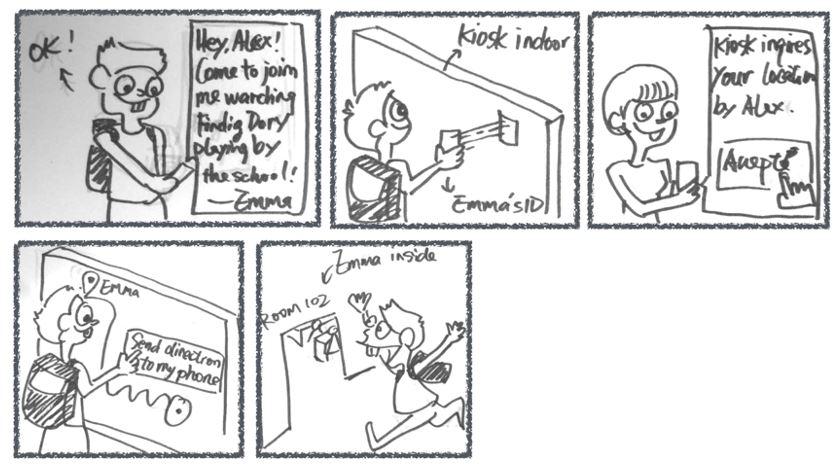 OK!
Hey, Alex!
Come to join
me warching
Findig Dory
playing by
the school!
—Emma
Kiosk indoor
Emma's ID
Kiosk inqires
your location
by Alex.
Acepte
Emma
Send direction
to my phone
Emma inside
ROOM 102